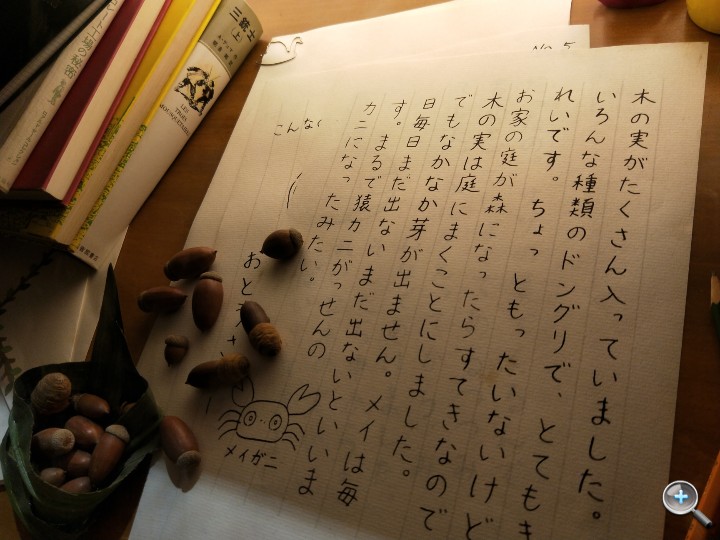 No. 5
木の実がたくさん入っていました。
いろんな種類のドングリで、とてもき
れいです。ちょっともったいないけど
お家の庭が森になったらすてきなので
木の実は庭にまくことにしました。
でもなかなか芽が出ません。メイは毎
日毎日まだ出ないまだ出ないといいま
す。まるで猿カニがっせんの
カニになったみたい。
こんな
おと
メイガニ
三銃士
(上)
LES
TROIS
MOUSQUETAIRES
ート工場の秘密